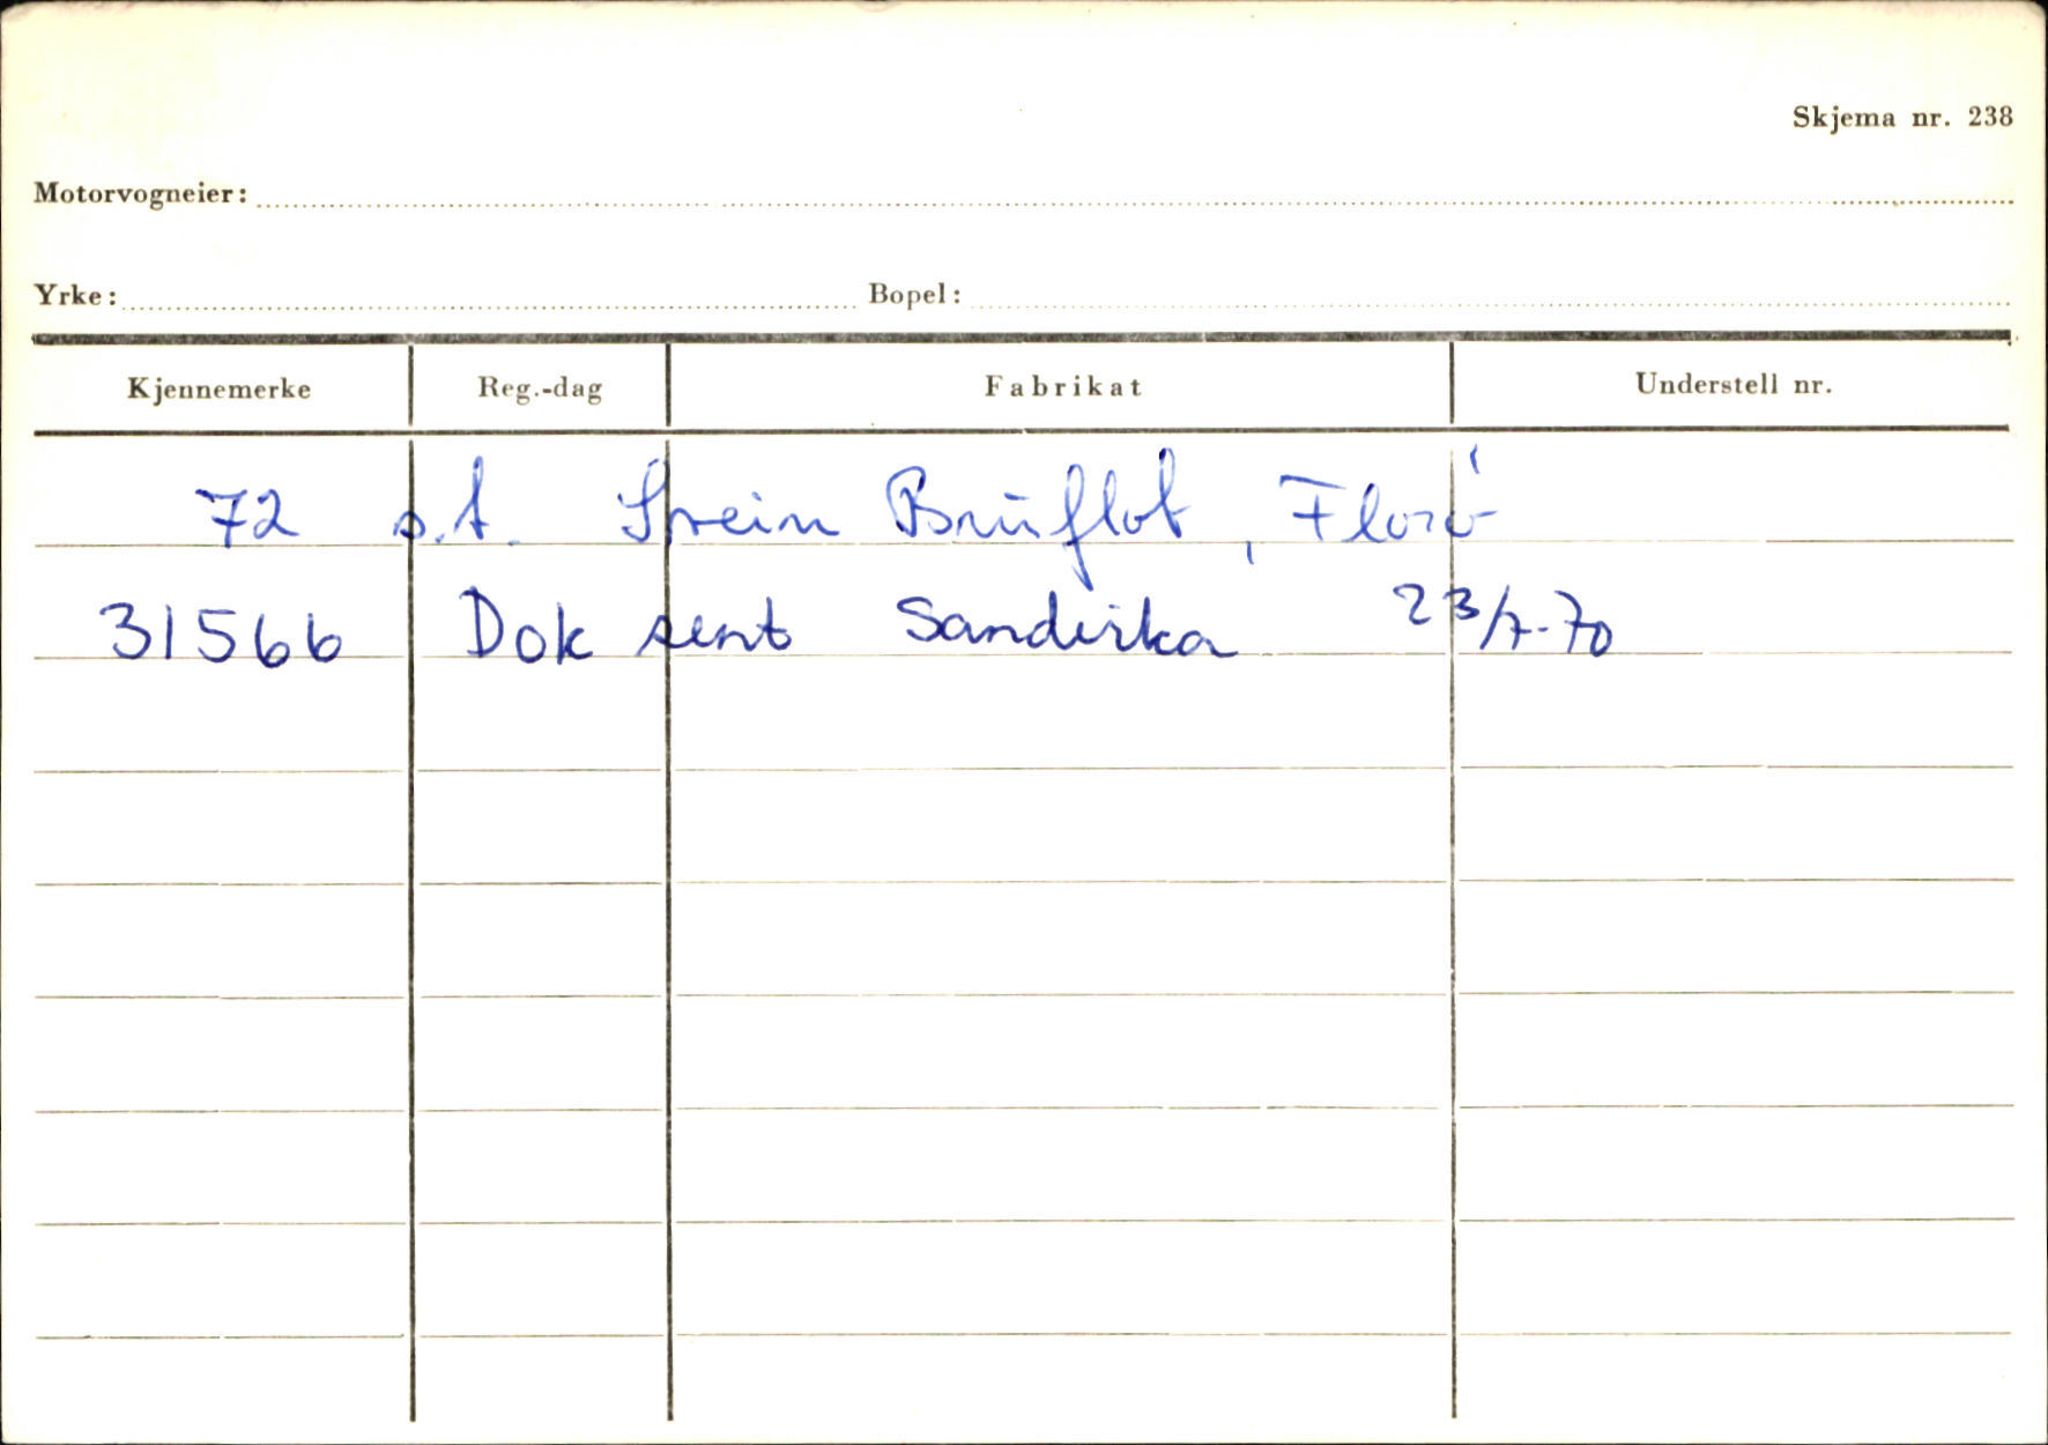 Skjema nr. 238
Motorvogneier:
Yrke: Bopel:
Kjennemerke Reg.-dag Fabrikat Understell nr.
72 s.t. Svein Bruflot, Florø
31566 Dok sent Sandvika 23/7-70